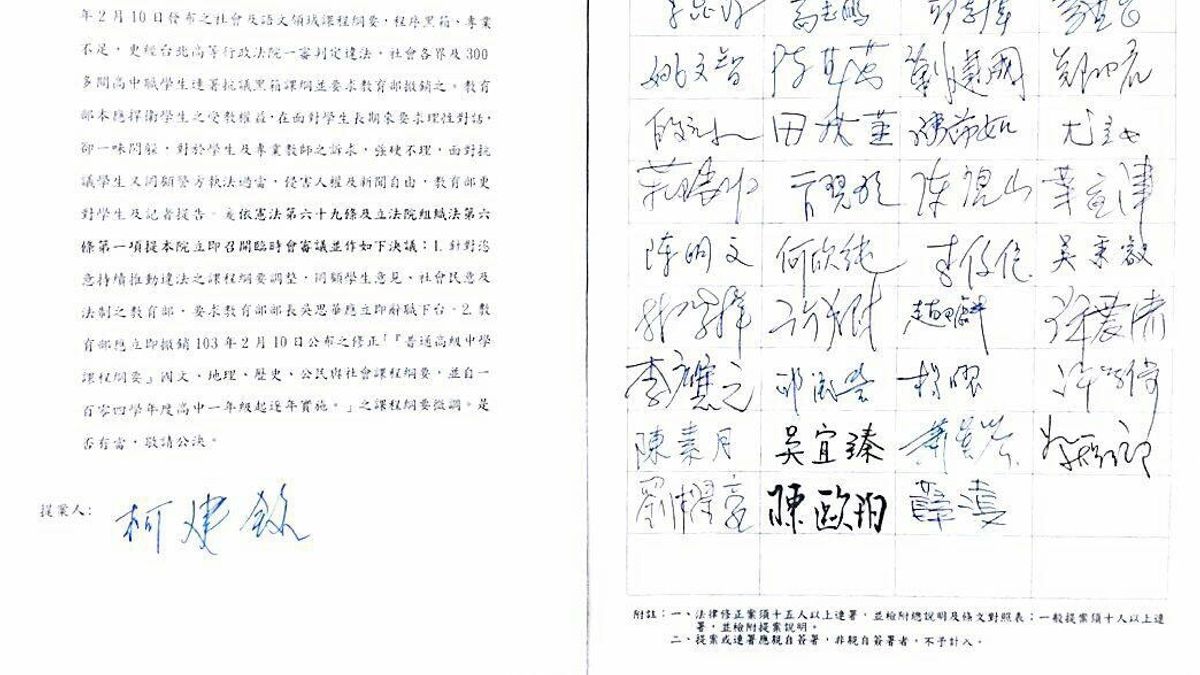 年2月10日發布之社會及語文領域課程綱要，程序黑箱、專業
不足，更經台北高等行政法院一審判定違法，社會各界及300
多間高中職學生連署抗議黑箱課綱並要求教育部撤銷之。教育
部本應捍衛學生之受教權益，在面對學生長期來要求理性對話，
卻一味閃躲，對於學生及專業教師之訴求，強硬不理，面對抗
議學生又罔顧警方執法過當，侵害人權及新聞自由，教育部更
對學生及記者提告。爰依憲法第六十九條及立法院組織法第六
條第一項提本院立即召開臨時會審議並作如下決議：1.針對恣
意持續推動違法之課程綱要調整，罔顧學生意見、社會民意及
法制之教育部，要求教育部部長吳思華應立即辭職下台。2.教
育部應立即撤銷103年2月10日公布之修正「『普通高級中學
課程綱要』國文、地理、歷史、公民與社會課程綱要，並自一
百零四學年度高中一年級起逐年實施。」之課程綱要微調。是
否有當，敬請公決。
提案人：柯建銘
高志鵬
姚文智 陳其邁 劉建國 鄭麗君
段宜康 田秋堇 陳節如 尤美女
莊瑞雄 陳唐山 葉宜津
陳明文 何欣純 李俊俋 吳秉叡
趙天麟 許添財
李應元 邱議瑩 楊曜 許智傑
陳素月 吳宜臻 蕭美琴
劉櫂豪 陳歐珀 薛凌
附註：一、法律修正案須十五人以上連署，並檢附總說明及條文對照表；一般提案須十人以上連
署，並檢附提案說明。
二、提案或連署應親自簽署，非親自簽署者，不予計入。